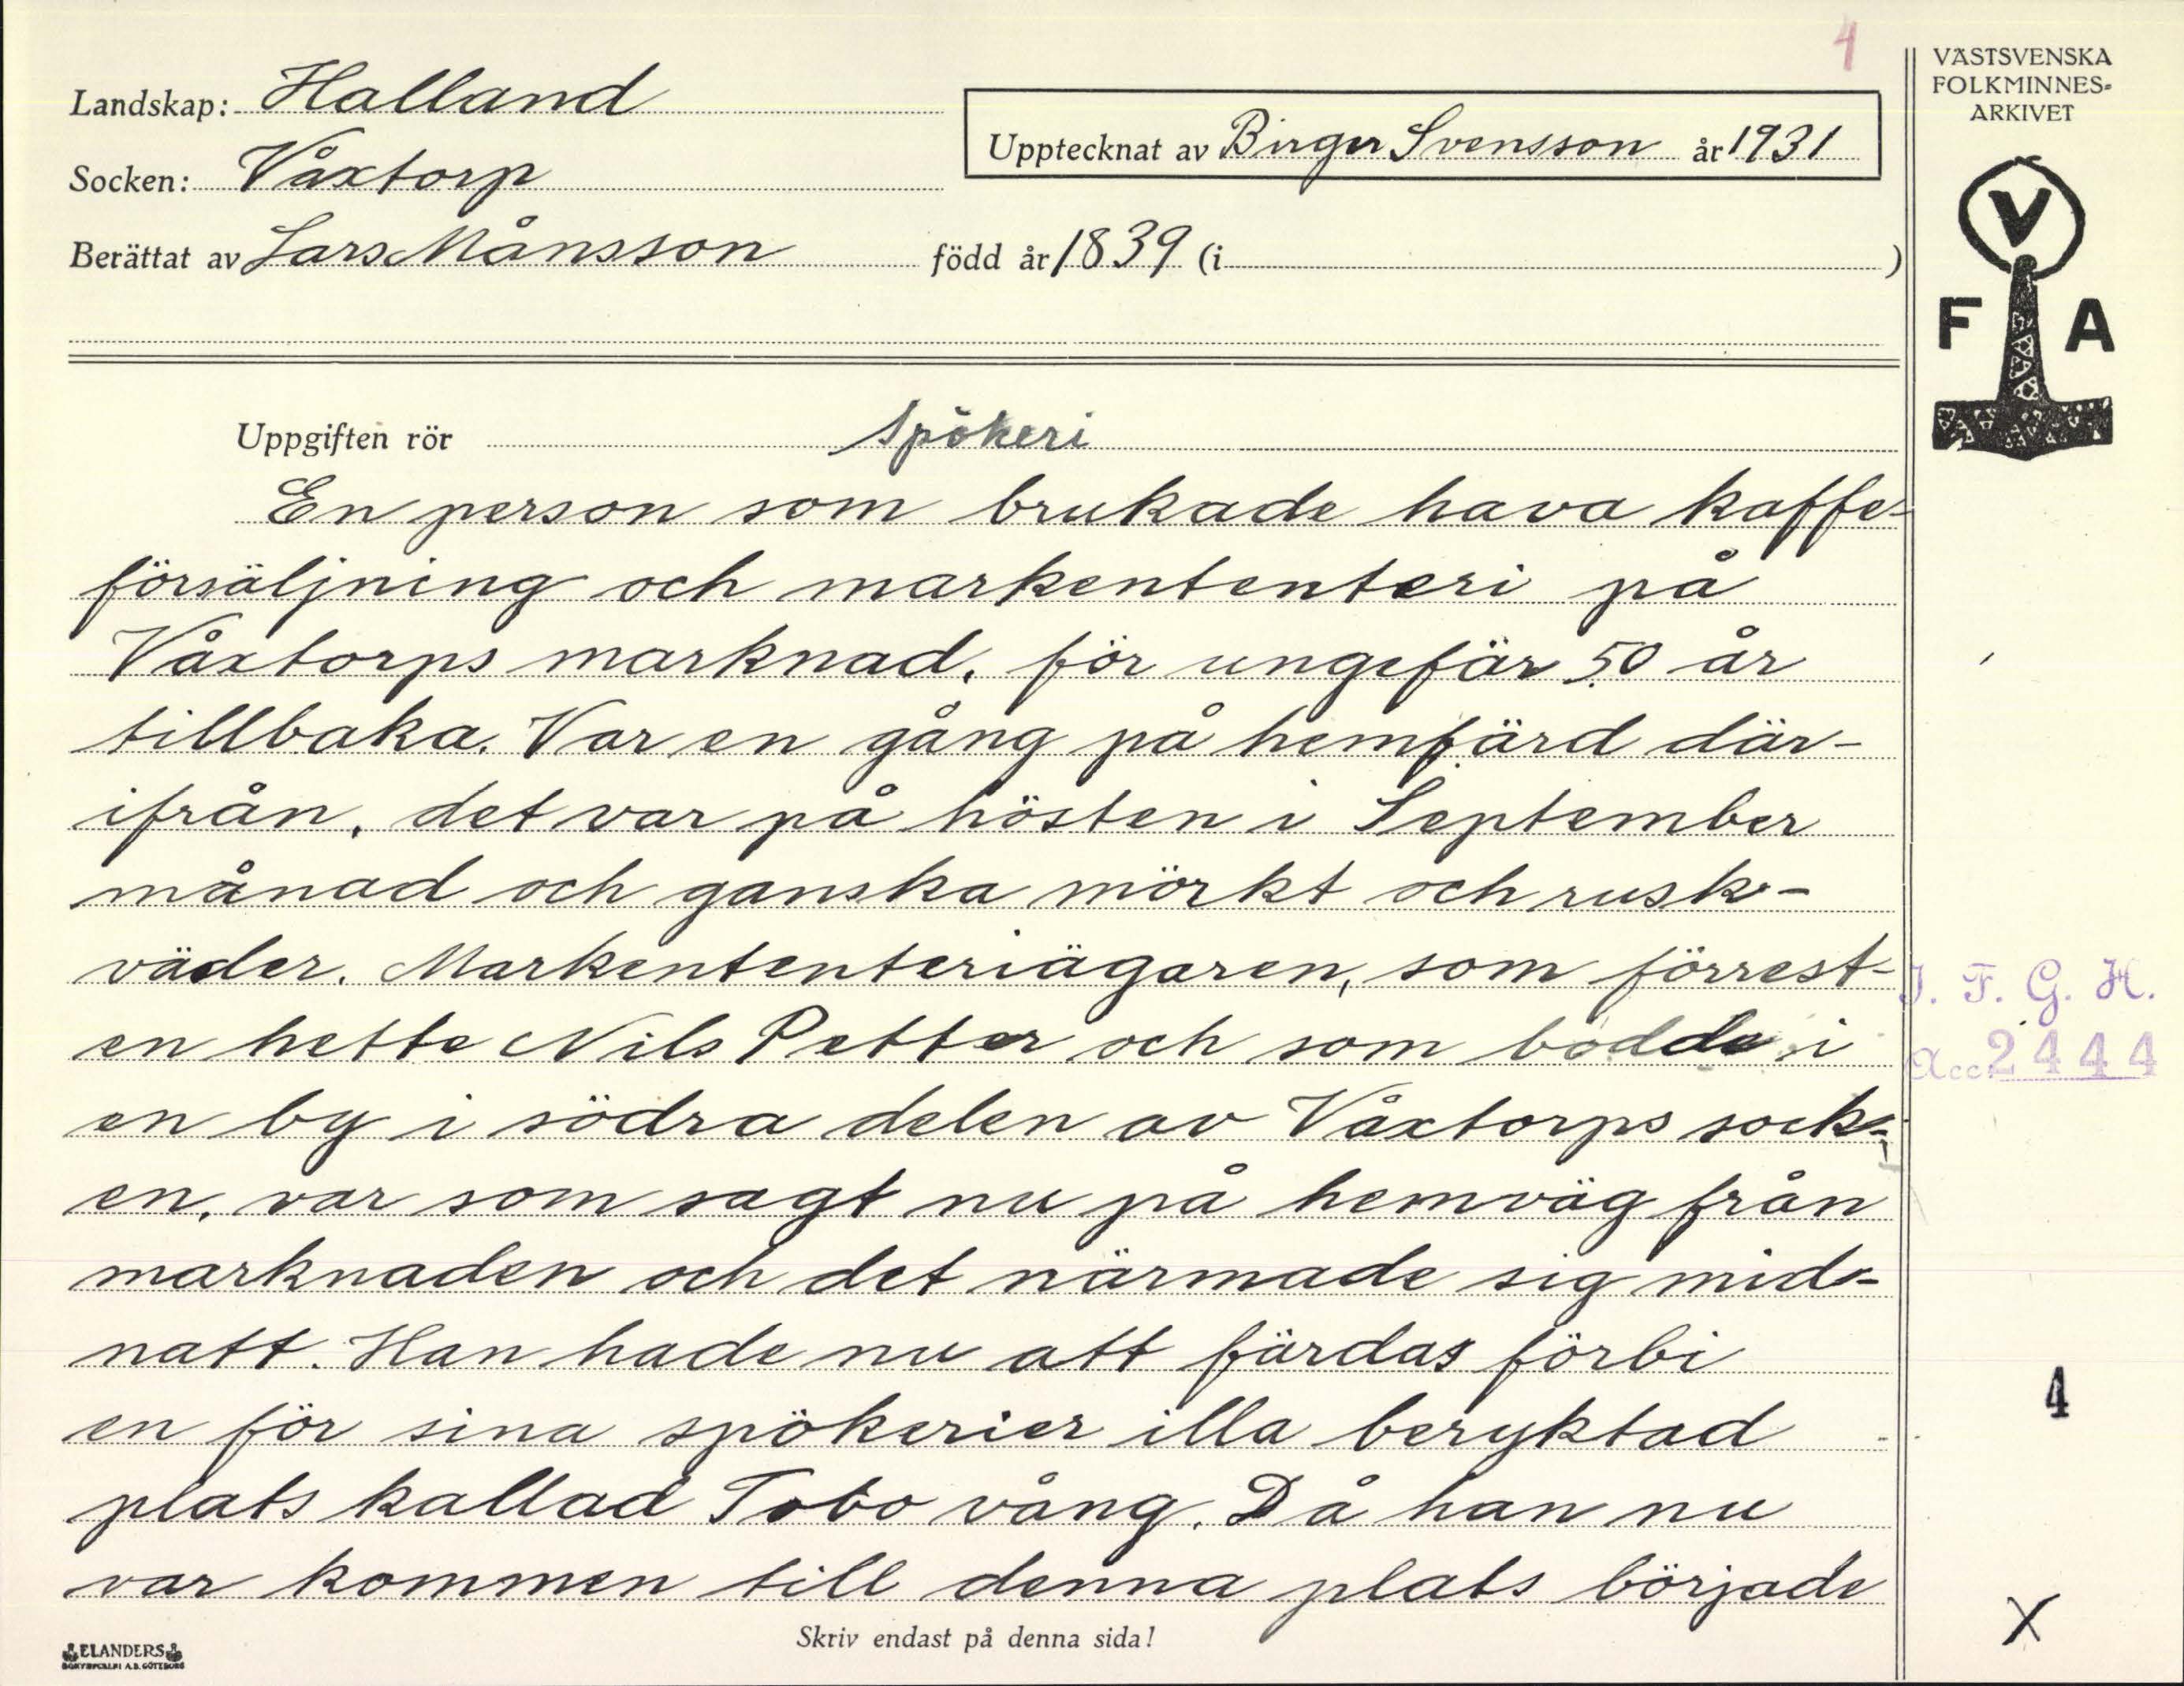 4
VÄSTSVENSKA
FOLKMINNES-
ARKIVET
Landskap: Halland
Upptecknat av Birger Svensson år 1931
Socken: Våxtorp
Berättat av Lars Månsson född år 1839 (i )
V
F A
Uppgiften rör Spökeri
En person som brukade hava kaffe-
försäljning och markententeri på
Våxtorps marknad, för ungefär 50 år
tillbaka. Var en gång på hemfärd där-
ifrån, det var på hösten i September
månad och ganska mörkt och rusk-
väder. Markententeriägaren, som förrest-
en hette Nils Petter och som bodde i
en by i södra delen av Våxtorps sock-
en, var som sagt nu på hemväg från
marknaden och det närmade sig mid-
natt. Han hade nu att färdas förbi
en för sina spökerier illa beryktad
plats kallad Tobo vång. Då han nu
var kommen till denna plats började
I. F. G. H.
Acc. 2444
4
X
Skriv endast på denna sida!
ELANDERS
BOKTRYCKERI A.B. GÖTEBORG